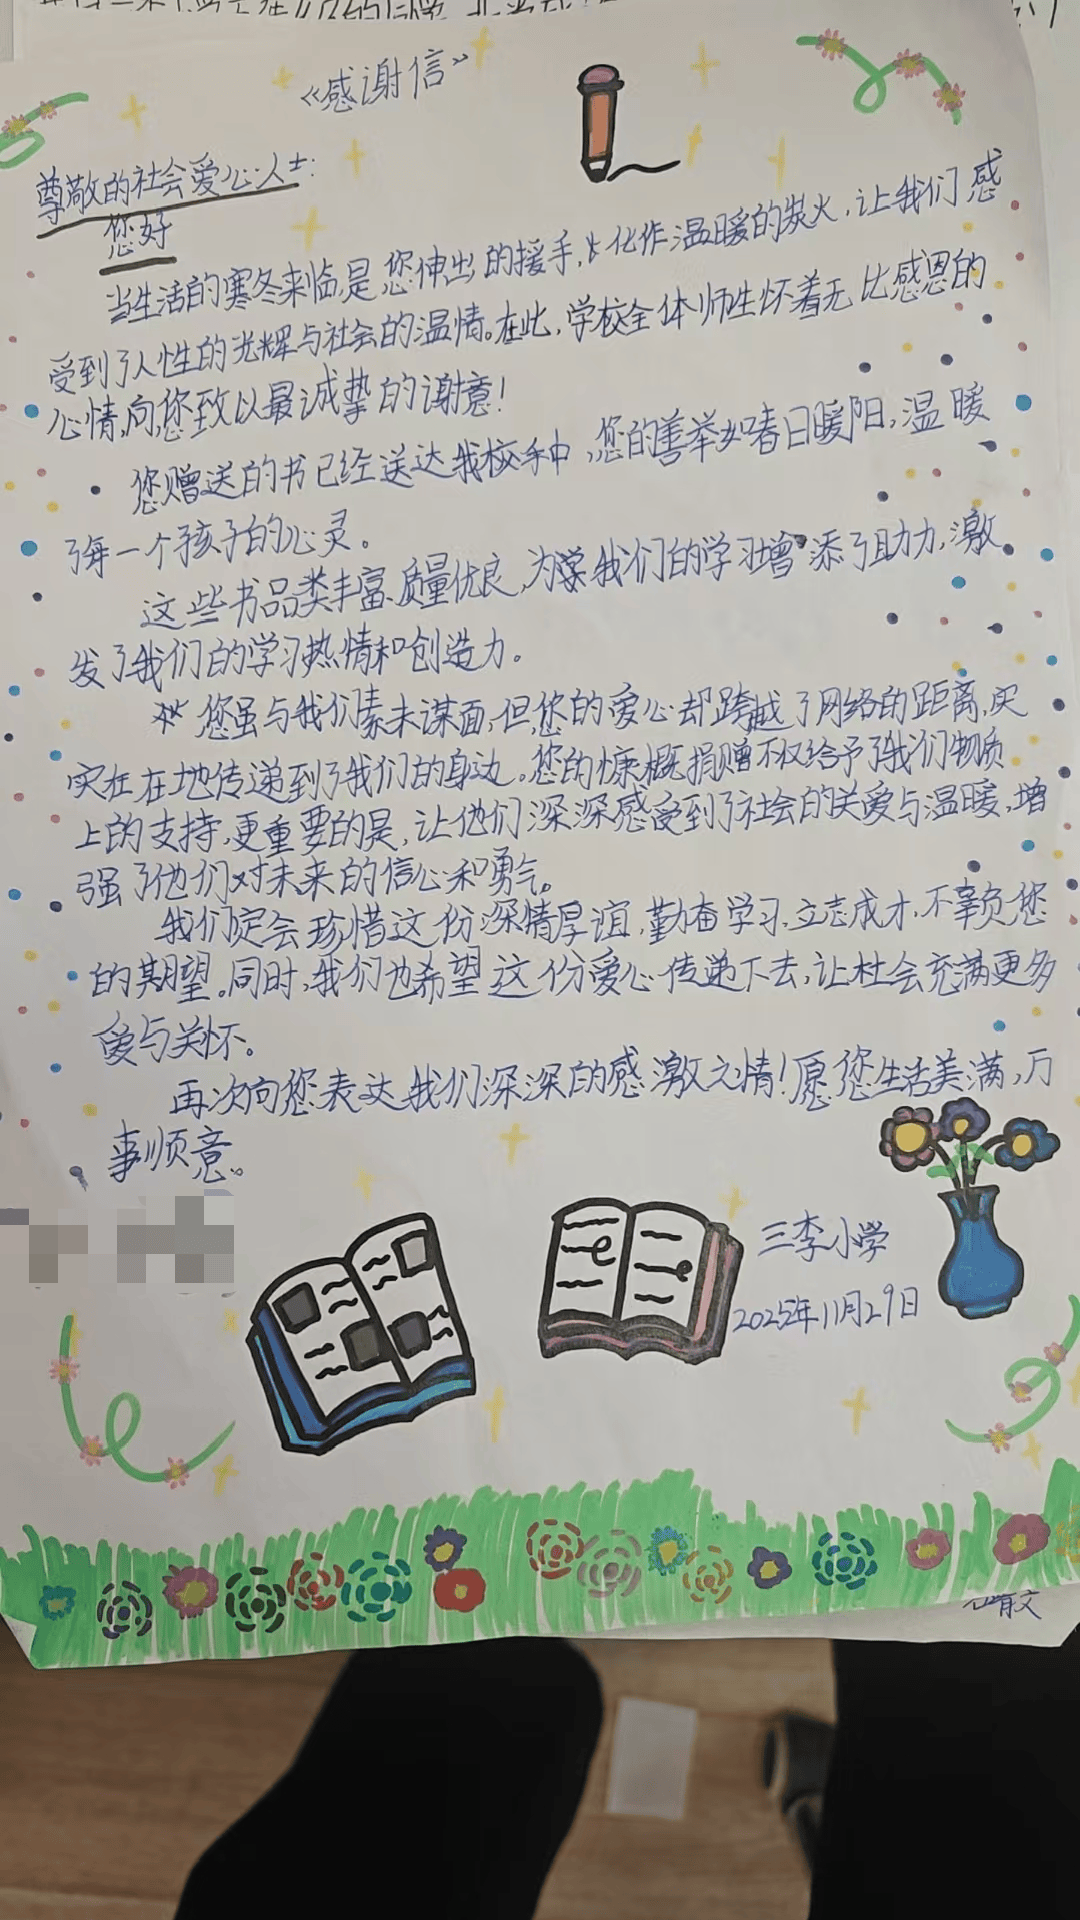 《感谢信》
尊敬的社会爱心人士:
您好
当生活的寒冬来临,是您伸出的援手,化作温暖的炭火,让我们感
受到了人性的光辉与社会的温情。在此,学校全体师生怀着无比感恩的
心情,向您致以最诚挚的谢意!
您赠送的书已经送达我校手中,您的善举如春日暖阳,温暖
了每一个孩子的心灵。
这些书品类丰富、质量优良,为我们的学习增添了助力,激
发了我们的学习热情和创造力。
您虽与我们素未谋面,但您的爱心却跨越了网络的距离,实
实在在地传递到了我们的身边。您的慷概捐赠不仅给予了我们物质
上的支持,更重要的是,让他们深深感受到了社会的关爱与温暖,增
强了他们对未来的信心和勇气。
我们定会珍惜这份深情厚谊,勤奋学习,立志成才,不辜负您
的期望。同时,我们也希望这份爱心传递下去,让社会充满更多
爱与关怀。
再次向您表达我们深深的感激之情!愿您生活美满,万
事顺意。
三李小学
2025年11月29日